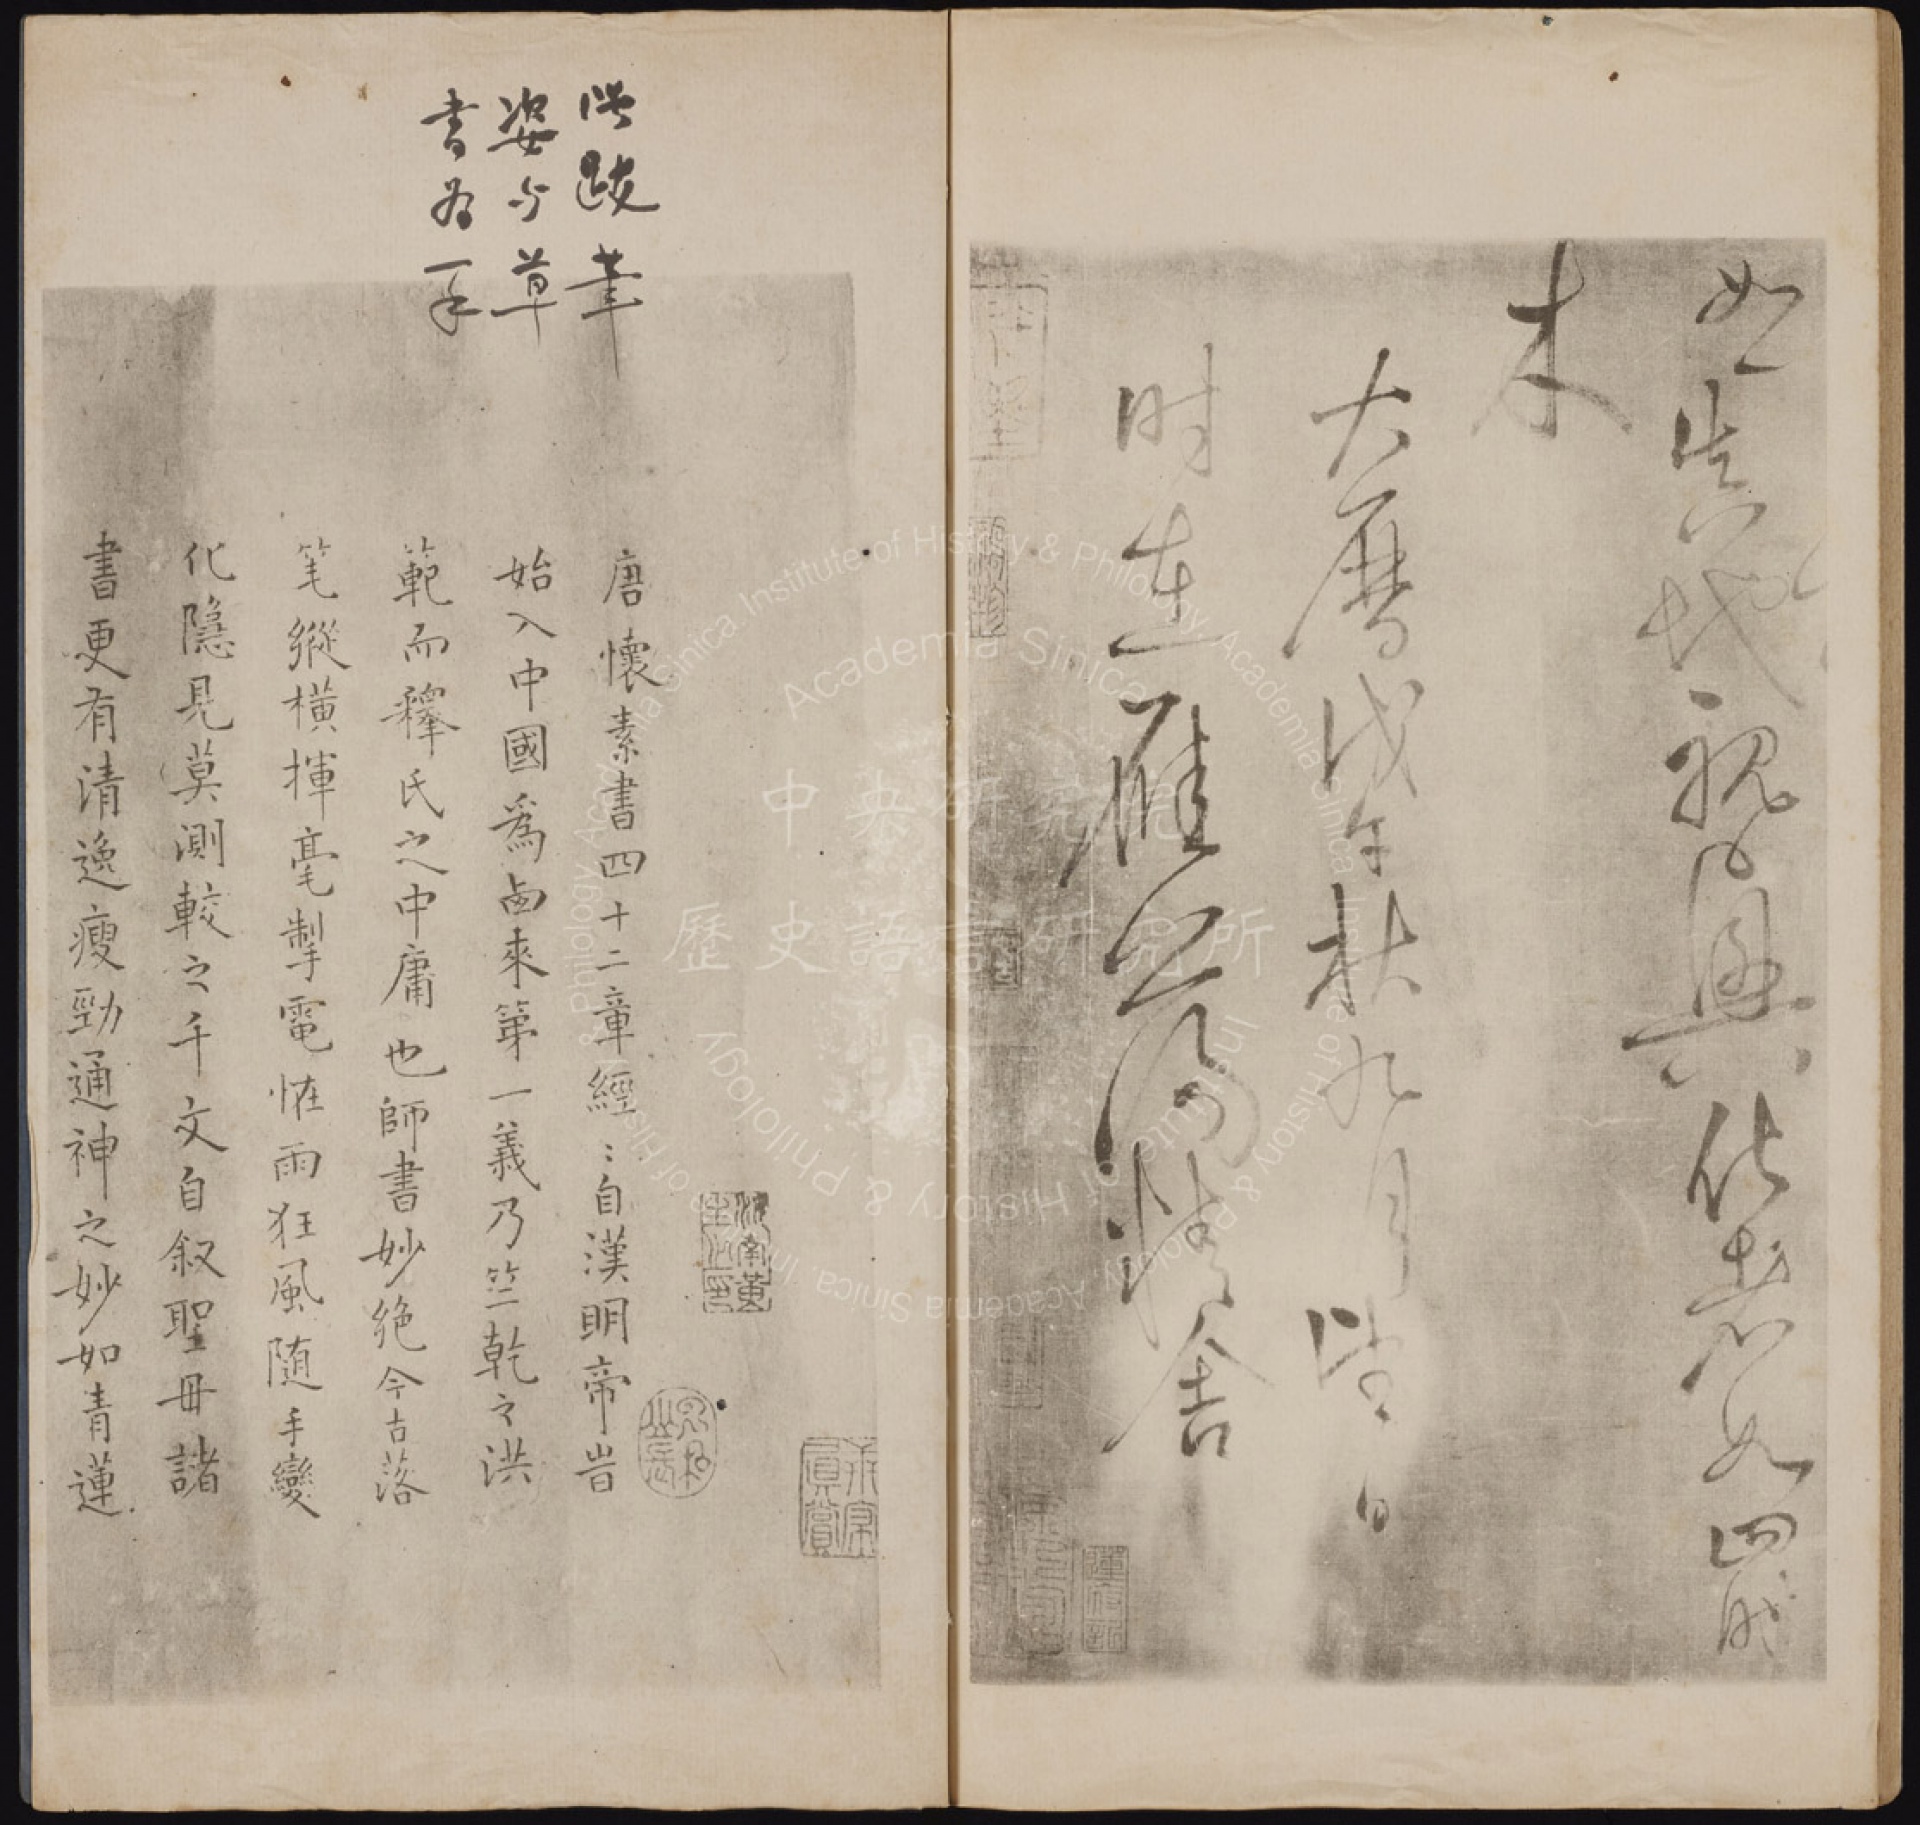 如真地視興化者如四時
木
大曆戊午秋九月日
時在雁蕩精舍
此跋筆
姿与草
書为一手
唐懷素書四十二章經〻自漢明帝旹
始入中國爲西來第一義乃竺乾之洪
範而釋氏之中庸也師書妙絶今古落
笔縱橫揮毫掣電恠雨狂風随手變
化隱見莫測較之千文自叙聖母諸
書更有清逸瘦勁通神之妙如青蓮
中央研究院
歷史語言研究所
Academia Sinica
Institute of History & Philology, Academia Sinica